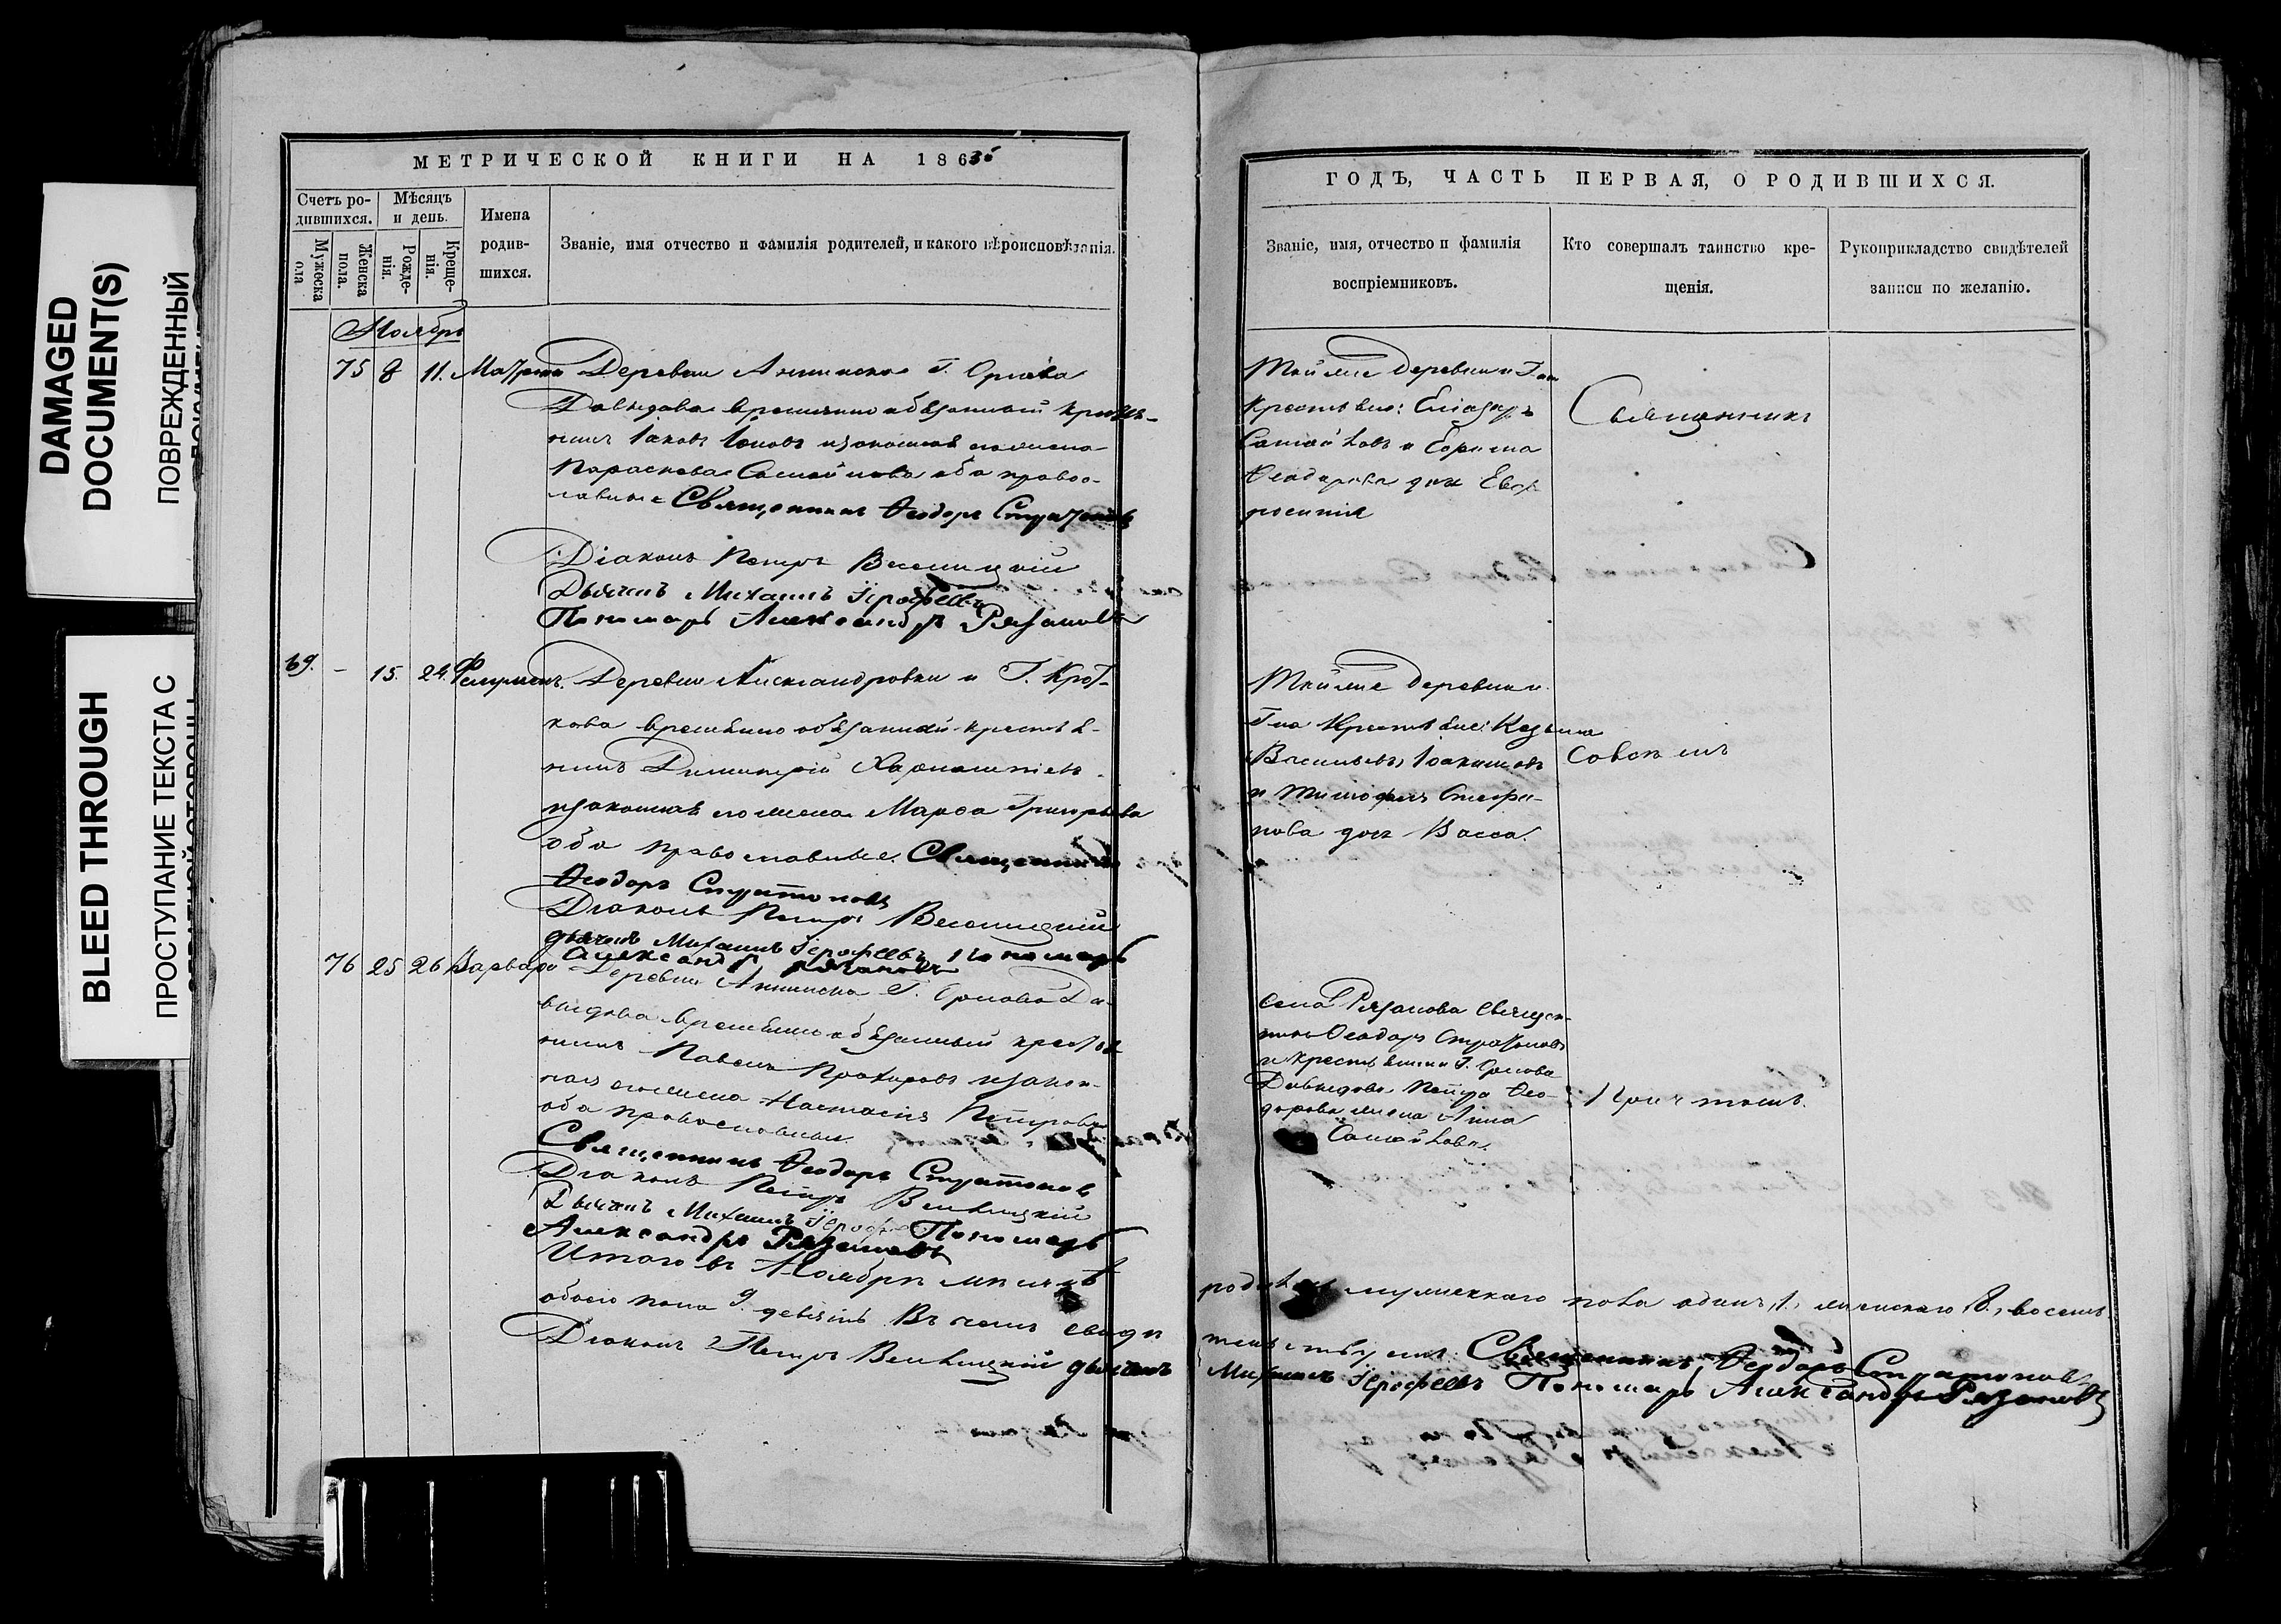 DAMAGED
DOCUMENT(S)
ПОВРЕЖДЕННЫЙ
BLEED THROUGH
ПРОСТУПАНИЕ ТЕКСТА С
МЕТРИЧЕСКОЙ КНИГИ НА 186
Счетъ ро-
дившихся.
Мѣсяцъ
и день.
Имена
родив-
шихся.
Мужеска
Женска
пола.
Рожде-
нія.
Креще-
нія.
Званіе, имя отчество и фамилія родителей, и какого вѣроисповѣданія.
Ноябрь
75 8 11. Матрона Деревни Аннинска Г. Орлова
Давыдова временно обязанный крестья-
нинъ Іаковъ Іоновъ и законная его жена
Параскева Самойлова оба право-
славные Священникъ Ѳеодоръ Стратоновъ
Діаконъ Петръ
Дьячекъ Михаилъ Іероѳеевъ
Пономарь Александръ Рязановъ
69. - 15. 24. Деревни Александровки Г. Крот-
кова временно обязанный крестья-
нинъ Димитрій
и законная его жена Марѳа Григорьева
оба православные Священникъ
Ѳеодоръ Стратоновъ
Діаконъ Петръ
дьячекъ Михаилъ Іероѳеевъ Пономарь
Александръ Рязановъ
76 25 26 Варвара Деревни Аннинска Г. Орлова Да-
выдова временно обязанный крестья-
нинъ Павелъ Прохоровъ и закон-
ная его жена Настасія Петрова
оба православные
Священникъ Ѳеодоръ Стратоновъ
Діаконъ Петръ
Дьячекъ Михаилъ Пономарь
Александръ Рязановъ
Итого въ Ноябрѣ мѣсяцѣ
обоего пола 9. девять Въ чемъ свидѣ
Діаконъ Петръ дьячекъ
ГОДЪ, ЧАСТЬ ПЕРВАЯ, О РОДИВШИХСЯ.
Званіе, имя, отчество и фамилія
воспріемниковъ.
Кто совершалъ таинство кре-
щенія.
Рукоприкладство свидѣтелей
записи по желанію.
Тойже деревни и Г-на
крестьяне: Елеазаръ
Самойловъ и
Ѳеодорова дочь Евф
росинія
Священникъ
Тойже деревни и
Г-на крестьяне: Козьма
Васильевъ
и Стефа-
нова дочь Васса.
Села Рязанова священ-
никъ Ѳеодоръ Стратоновъ
и крестьянина Г. Орлова
Давыдова Петра Ѳео-
дорова жена Анна
Самойлова.
родилось мужескаго пола одинъ, 1., женскаго 8., восемь.
тельствуемъ. Священникъ Ѳеодоръ Стратоновъ
Михаилъ Іероѳеевъ Пономарь Александръ Рязановъ